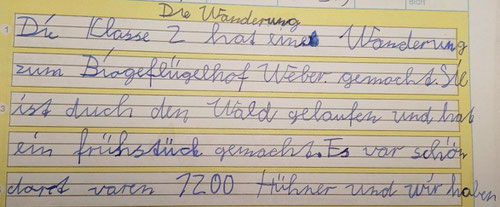 Die Wanderung
Die Klasse 2 hat eine Wanderung
zum Biogeflügelhof Weber. gemacht. Sie
ist duch den Wald gelaufen und hat
ein frühstück gemacht. Es var schön
doret varen 1200 Hühner und wir haben